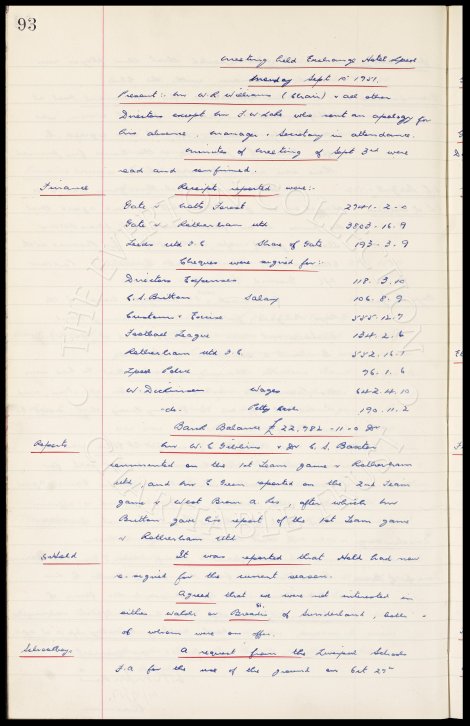 93
Meeting held Exchange Hotel L'pool
Monday Sept 10th 1951.
Present:- Mr W.R. Williams (Chair) & all other
Directors except Mr who sent an apology for
his absence. Manager & Secretary in attendance.
Minutes of Meeting of Sept 3rd were
read and confirmed.
Finance Receipts reported were:-
Gate v Notts Forest 2741 - 2 - 0
Gate v Rotherham Utd 3803 - 16 . 9
Leeds Utd F.C. Share of Gate 193 - 3 . 9
Cheques were signed for:-
Directors Expenses 118 . 3 . 10
C.S. Britton Salary 106 . 8 . 9
Customs & Excise 555 . 12 . 7
Football League 134 . 2 . 6
Rotherham Utd F.C. 552 . 16 . 1
L'pool Police 76 . 1 . 6
W. Dickinson Wages 642 . 4 . 10
-do- Petty Cash 190 . 11 . 2
Bank Balance £22,982 - 11 - 0 Dr
Reports Mr W.C. Gibbins & Dr C.S. Baxter
commented on the 1st Team game v Rotherham
Utd, and Mr E Green reported on the 2nd Team
game v West Brom A. Res, after which Mr
Britton gave his report of the 1st Team game
v Rotherham Utd
Held It was reported that Held had now
re-signed for the current season.
Agreed that we were not interested in
either Walsh or of Sunderland, both
of whom were on offer.
Schoolboys A request from the Liverpool Schools
F.A. for the use of the ground on Oct
THE EVERTON COLLECTION
CHARITABLE